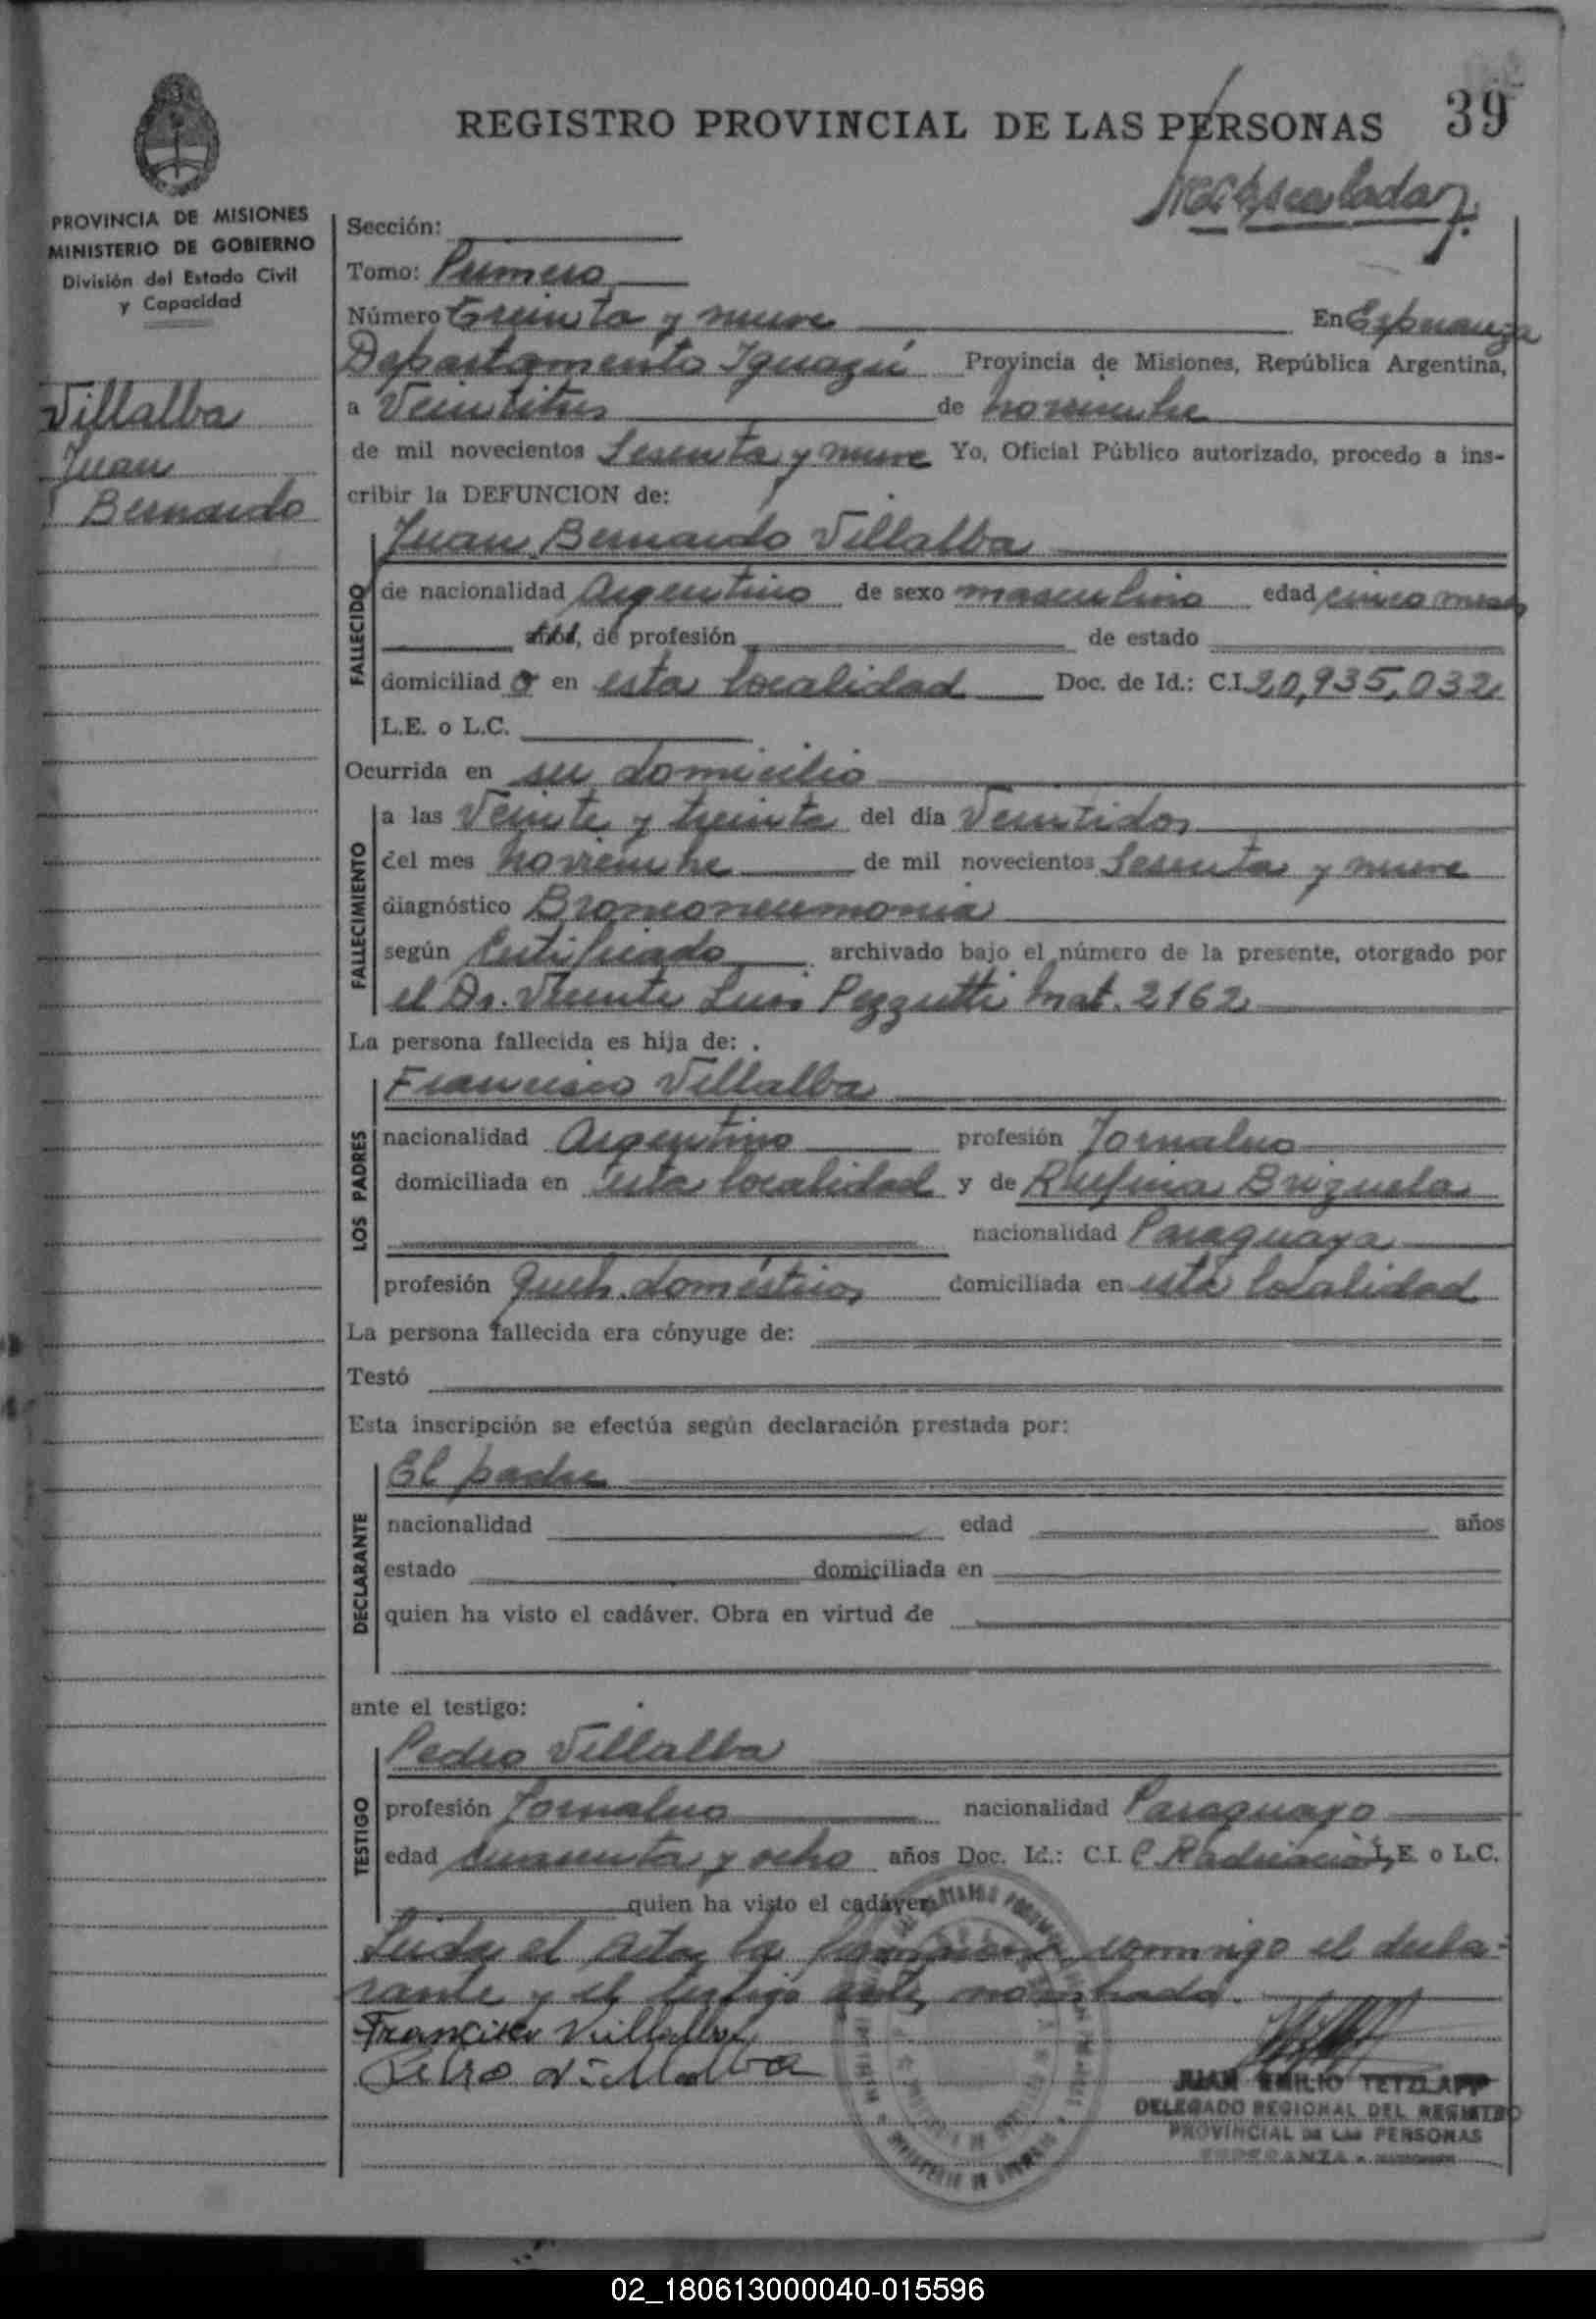 REGISTRO PROVINCIAL DE LAS PERSONAS 39
PROVINCIA DE MISIONES
MINISTERIO DE GOBIERNO
División del Estado Civil
y Capacidad
Villalba
Juan
Bernardo
Sección:
Tomo: Primero
Número Treinta y nueve En Esperanza
Departamento Iguazú Provincia de Misiones, República Argentina,
a Veintitres de noviembre
de mil novecientos Sesenta y nueve Yo, Oficial Público autorizado, procedo a ins-
cribir la DEFUNCION de:
FALLECIDO
Juan Bernardo Villalba
de nacionalidad Argentino de sexo masculino edad cinco meses
años, de profesión de estado
domiciliad o en esta localidad Doc. de Id.: C.I. 20,935,032
L.E. o L.C.
Ocurrida en su domicilio
FALLECIMIENTO
a las Veinte y treinta del día Veintidos
del mes noviembre de mil novecientos Sesenta y nueve
diagnóstico Bronconeumonia
según Certificado archivado bajo el número de la presente, otorgado por
el Dr. Vicente Luis Pezzutti Mat. 2162
La persona fallecida es hija de:
LOS PADRES
Francisco Villalba
nacionalidad Argentino profesión Jornalero
domiciliada en esta localidad y de Rufina Brizuela
nacionalidad Paraguaya
profesión Queh. domésticos domiciliada en esta localidad
La persona fallecida era cónyuge de:
Testó
Esta inscripción se efectúa según declaración prestada por:
DECLARANTE
El padre
nacionalidad edad años
estado domiciliada en
quien ha visto el cadáver. Obra en virtud de
ante el testigo:
TESTIGO
Pedro Villalba
profesión Jornalero nacionalidad Paraguayo
edad cincuenta y ocho años Doc. Id.: C.I. C. Radicación L.E. o L.C.
quien ha visto el cadáver
Leida el acta la firmaron conmigo el decla-
rante y el testigo ante nombrado.
Francisco Villalba
Pedro Villalba
JUAN EMILIO TETZLAFF
DELEGADO REGIONAL DEL REGISTRO
PROVINCIAL DE LAS PERSONAS
ESPERANZA - MISIONES
02_180613000040-015596